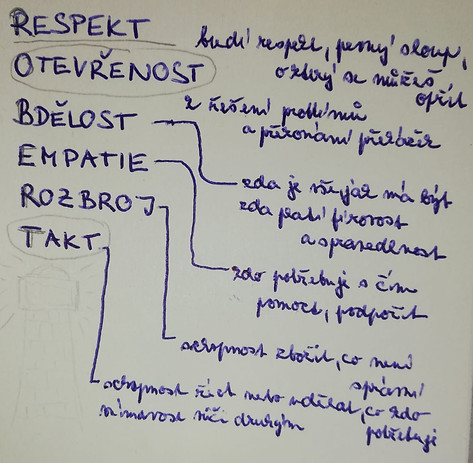 RESPEKT
budí respekt, pevný sloup,
OTEVŘENOST
o který se můžeš
opřít
BDĚLOST
z řešení problémů
a překonání překážek
EMPATIE
zda je vše jak má být
ROZBROJ
zda platí férovost
a spravedlnost
TAKT
kdo potřebuje s čím
pomoci, podpořit
schopnost zbořit, co není
správné
schopnost říct nebo udělat, co kdo
potřebuje
vnímavost vůči druhým